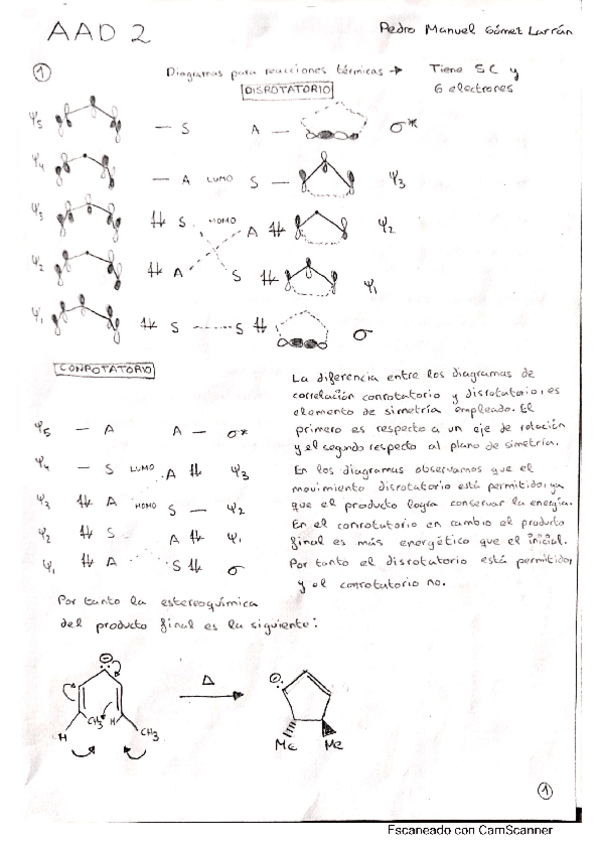 AAD 2
Pedro Manuel Gómez Larrán
1
Diagramas para reacciones térmicas → Tiene 5C y
6 electrones
DISROTATORIO
Ψ5 — S A — σ*
Ψ4 — A LUMO S — Ψ3
Ψ3 S HOMO A Ψ2
Ψ2 A S Ψ1
Ψ1 S S σ
CONROTATORIO
Ψ5 — A A — σ*
Ψ4 — S LUMO A Ψ3
Ψ3 A HOMO S — Ψ2
Ψ2 S A Ψ1
Ψ1 A S σ
La diferencia entre los diagramas de
correlación conrotatorio y disrotatorio, es
elemento de simetría empleado. El
primero es respecto a un eje de rotación
y el segundo respecto al plano de simetría.
En los diagramas observamos que el
movimiento disrotatorio está permitido, ya
que el producto logra conservar la energía.
En el conrotatorio en cambio el producto
final es más energético que el inicial.
Por tanto el disrotatorio está permitido,
y el conrotatorio no.
Por tanto la estereoquímica
del producto final es la siguiente:
Δ
H CH3 H CH3
Me Me
1
Escaneado con CamScanner